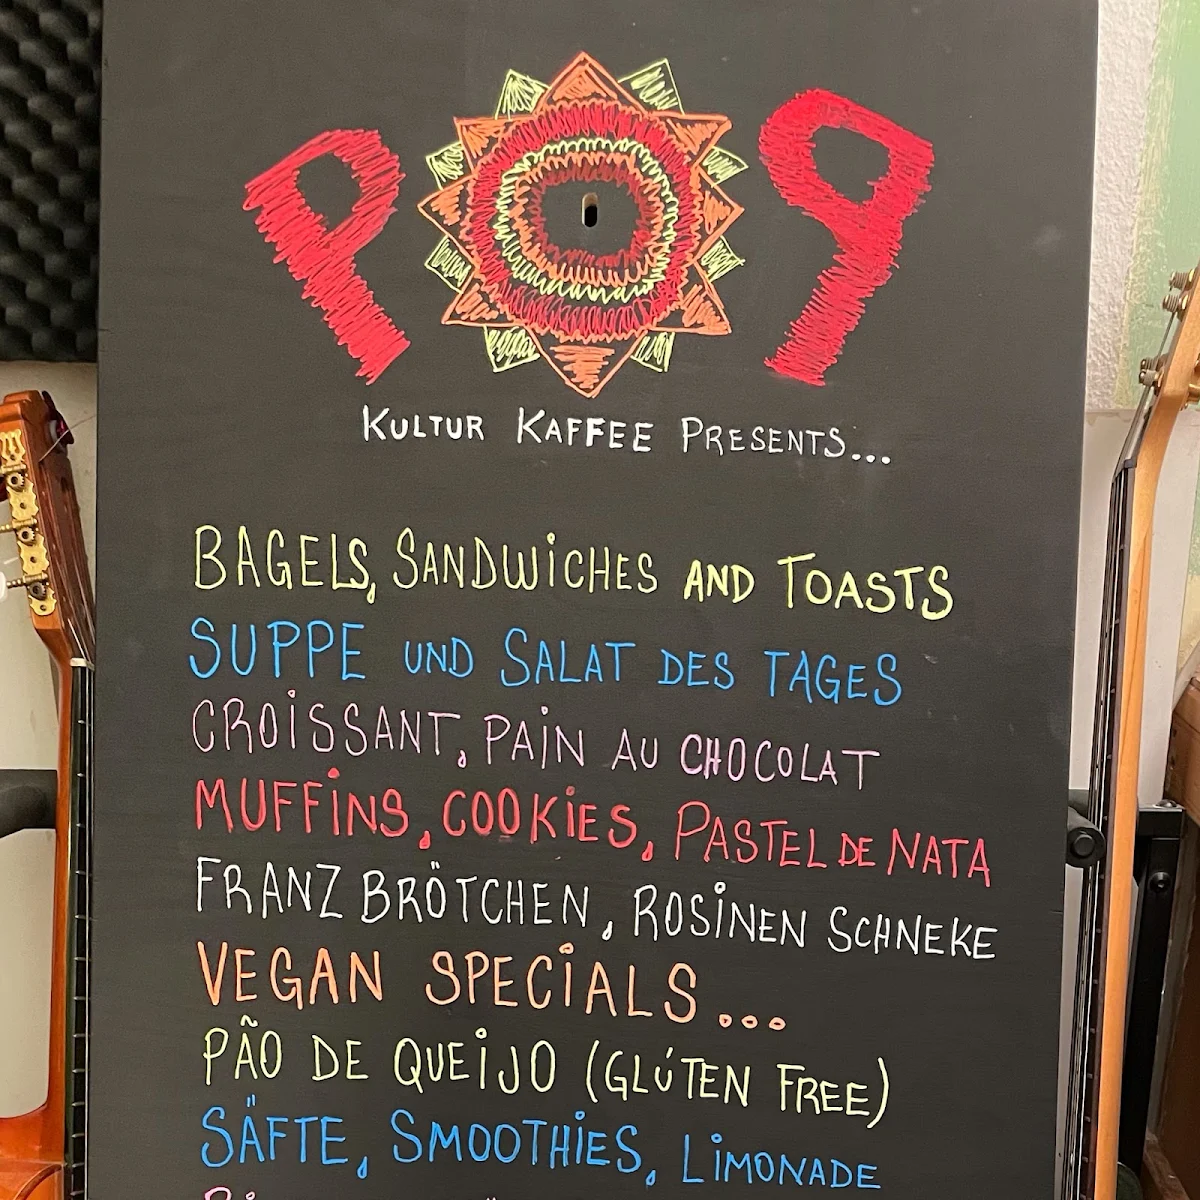 POP
KULTUR KAFFEE PRESENTS...
BAGELS, SANDWiCHES AND TOASTS
SUPPE UND SALAT DES TAGES
CROiSSANT, PAiN AU CHOCOLAT
MUFFiNS, COOKiES, PASTEL DE NATA
FRANZ BRÖTCHEN, ROSiNEN SCHNEKE
VEGAN SPECiALS...
PÃO DE QUEiJO (GLÚTEN FREE)
SÄFTE, SMOOTHiES, LiMONADE